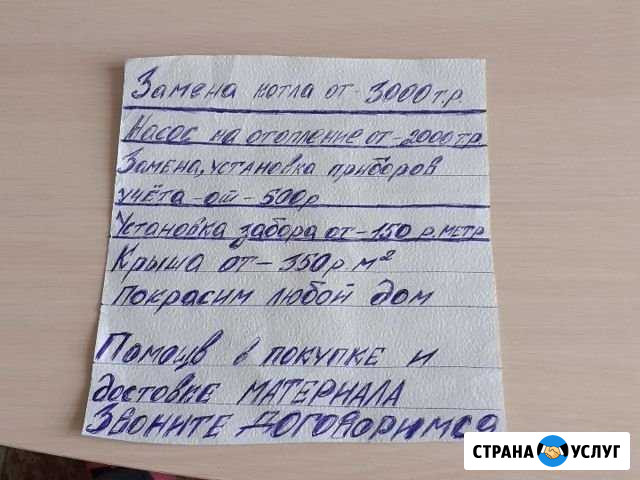 Замена котла от-3000т.р.
Насос на отопление от-2000тр
Замена, установка приборов
учёта-от-500р
Установка забора от-150р.метр
Крыша от-350р м²
покрасим любой дом
Помощв в покупке и
доставке МАТЕРИАЛА
Звоните договоримся
СТРАНА УСЛУГ